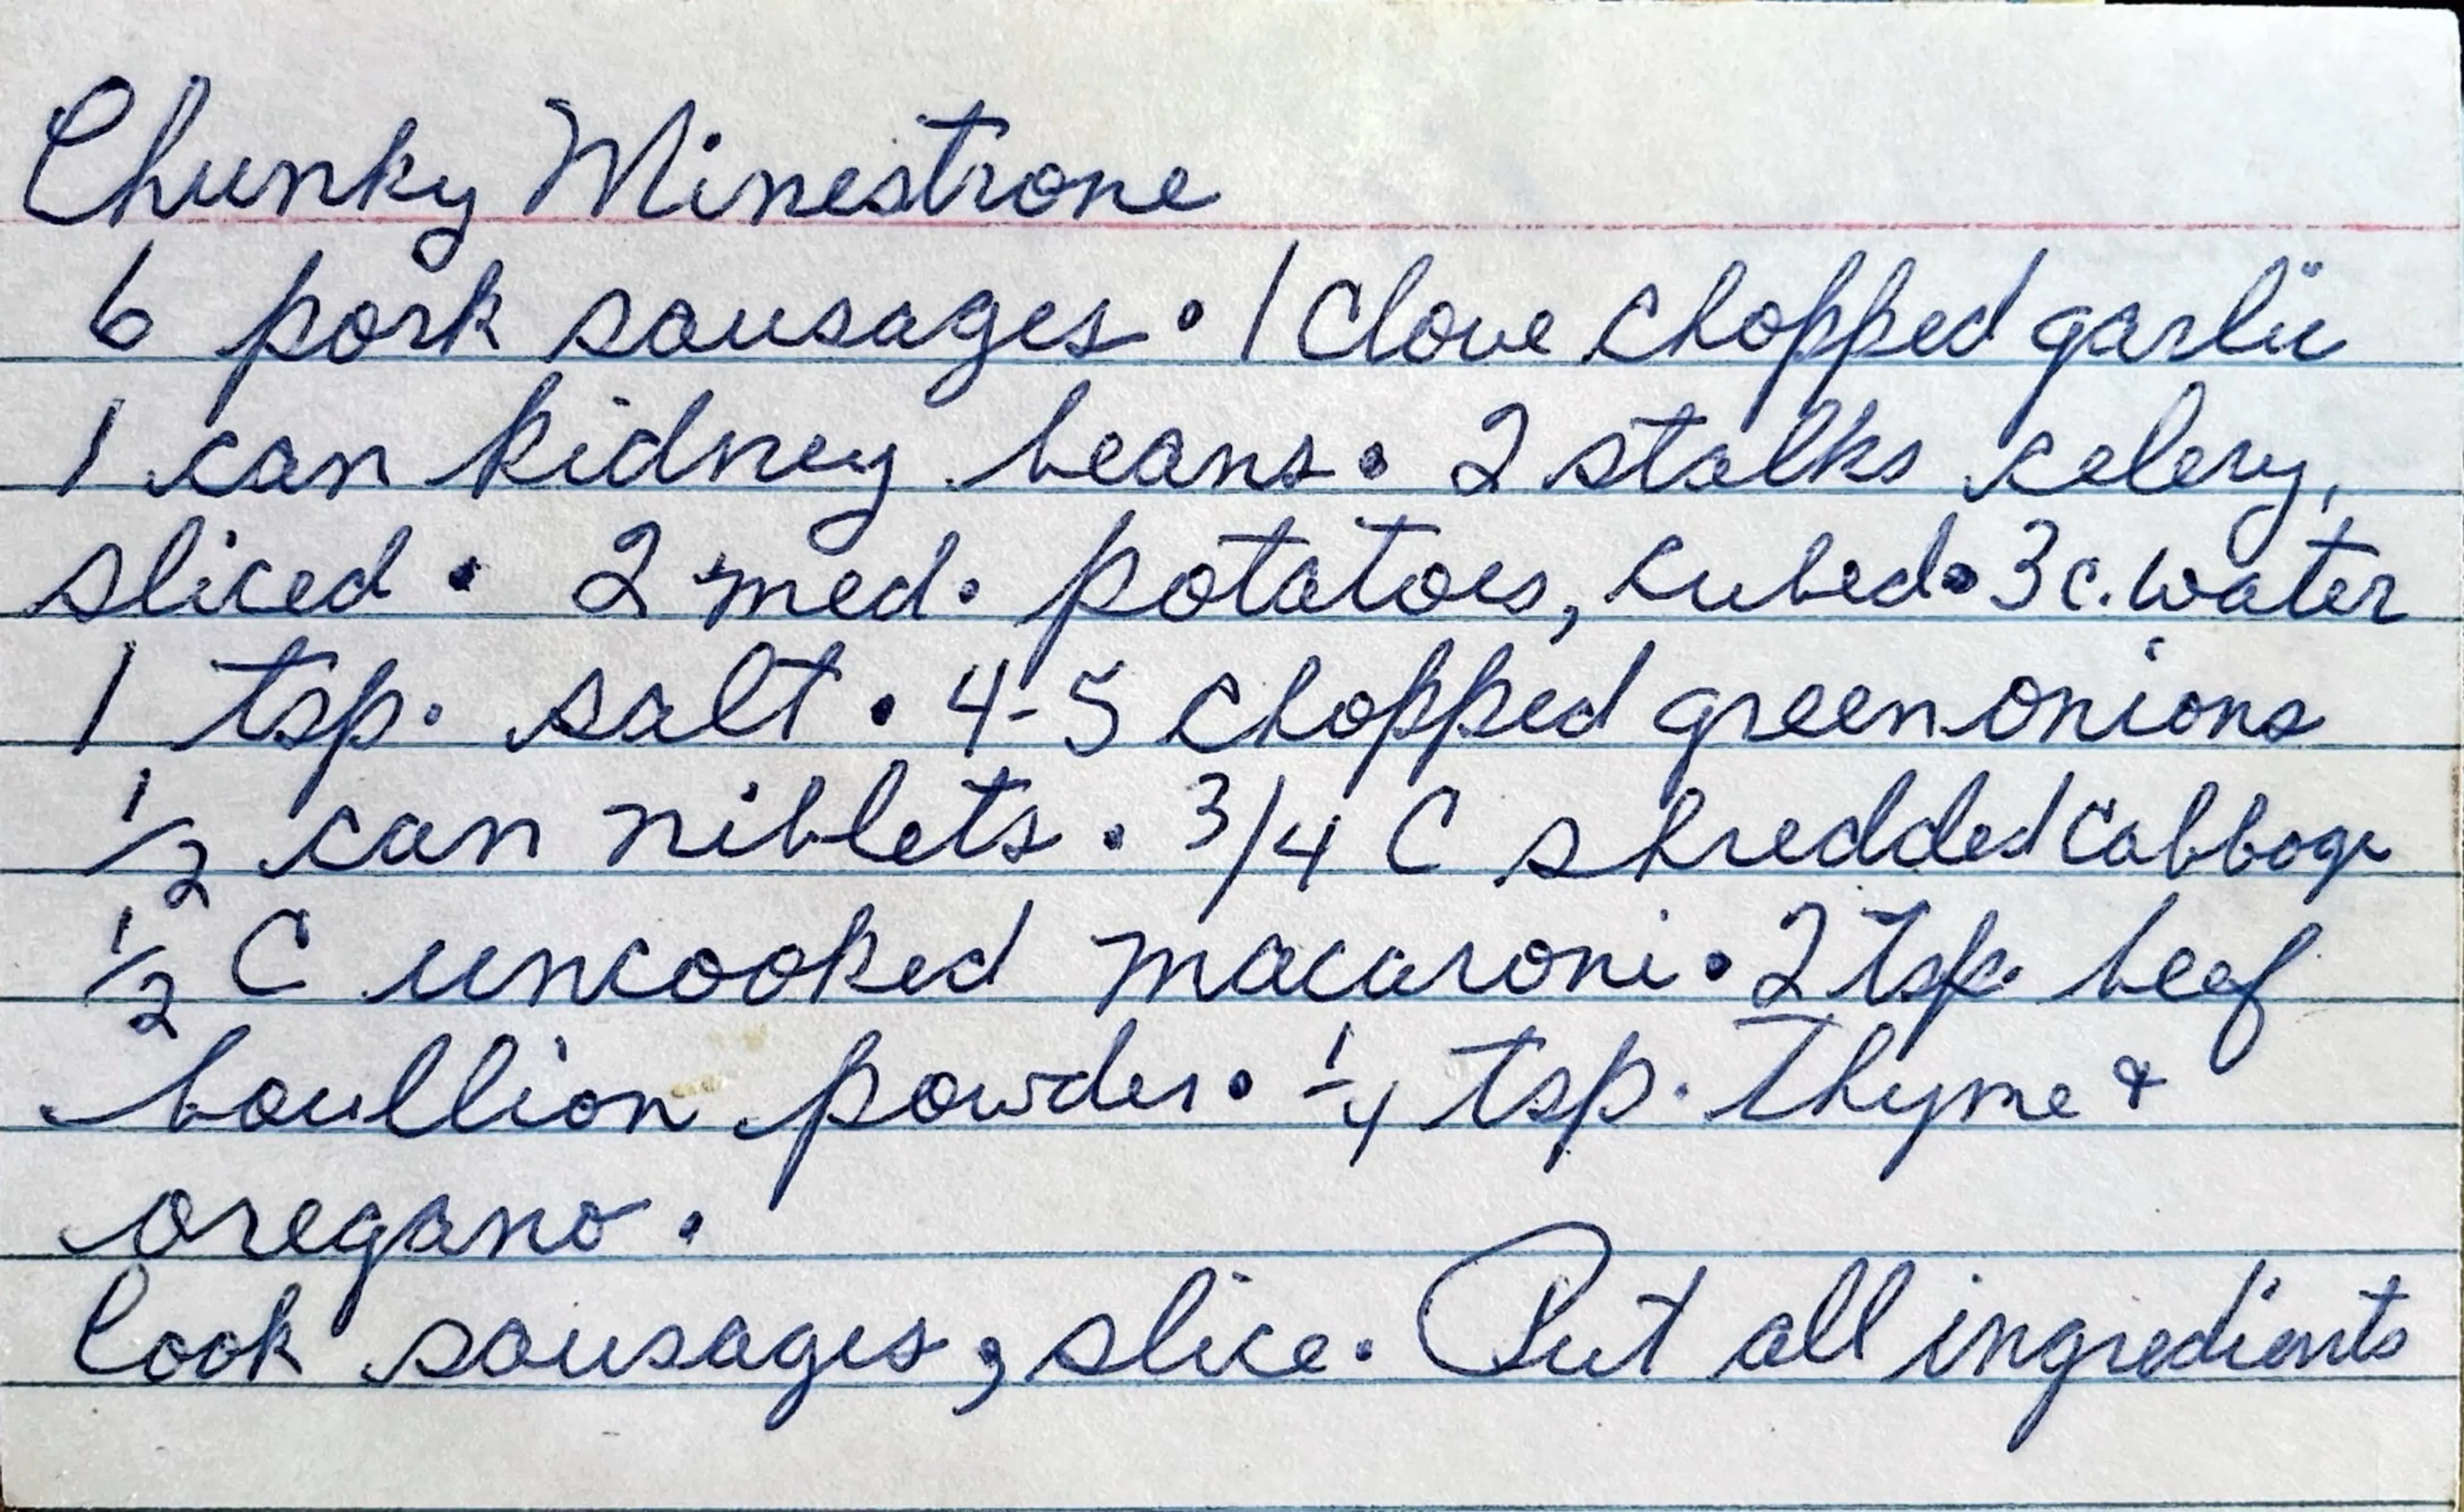 Chunky Minestrone
6 pork sausages • 1 clove chopped garlic
1 can kidney beans • 2 stalks celery,
sliced • 2 med. potatoes, cubed • 3 c. water
1 tsp. salt • 4-5 chopped green onions
1/2 can niblets • 3/4 C shredded cabbage
1/2 C uncooked macaroni • 2 tsp. beef
boullion powder • 1/4 tsp. Thyme &
oregano.
Cook sausages, slice. Put all ingredients